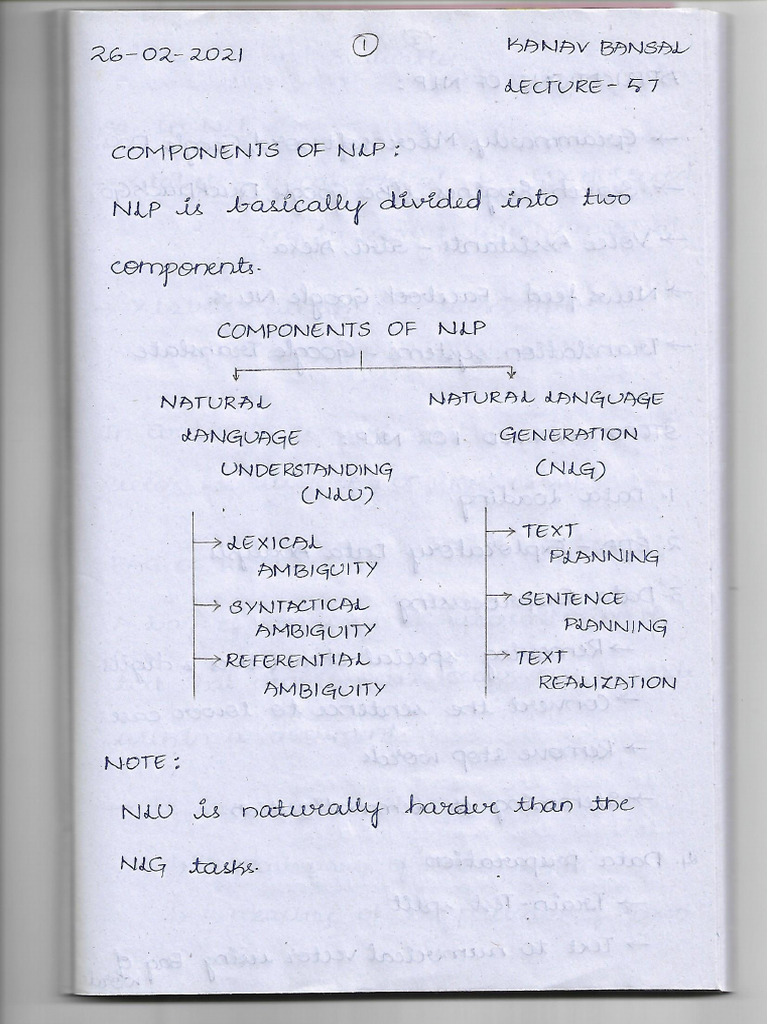 26-02-2021 1 KANAV BANSAL
LECTURE - 57
COMPONENTS OF NLP:
NLP is basically divided into two
components.
COMPONENTS OF NLP
NATURAL NATURAL LANGUAGE
LANGUAGE GENERATION
UNDERSTANDING (NLG)
(NLU)
→ LEXICAL → TEXT
AMBIGUITY PLANNING
→ SYNTACTICAL → SENTENCE
AMBIGUITY PLANNING
→ REFERENTIAL → TEXT
AMBIGUITY REALIZATION
NOTE:
NLU is naturally harder than the
NLG tasks.